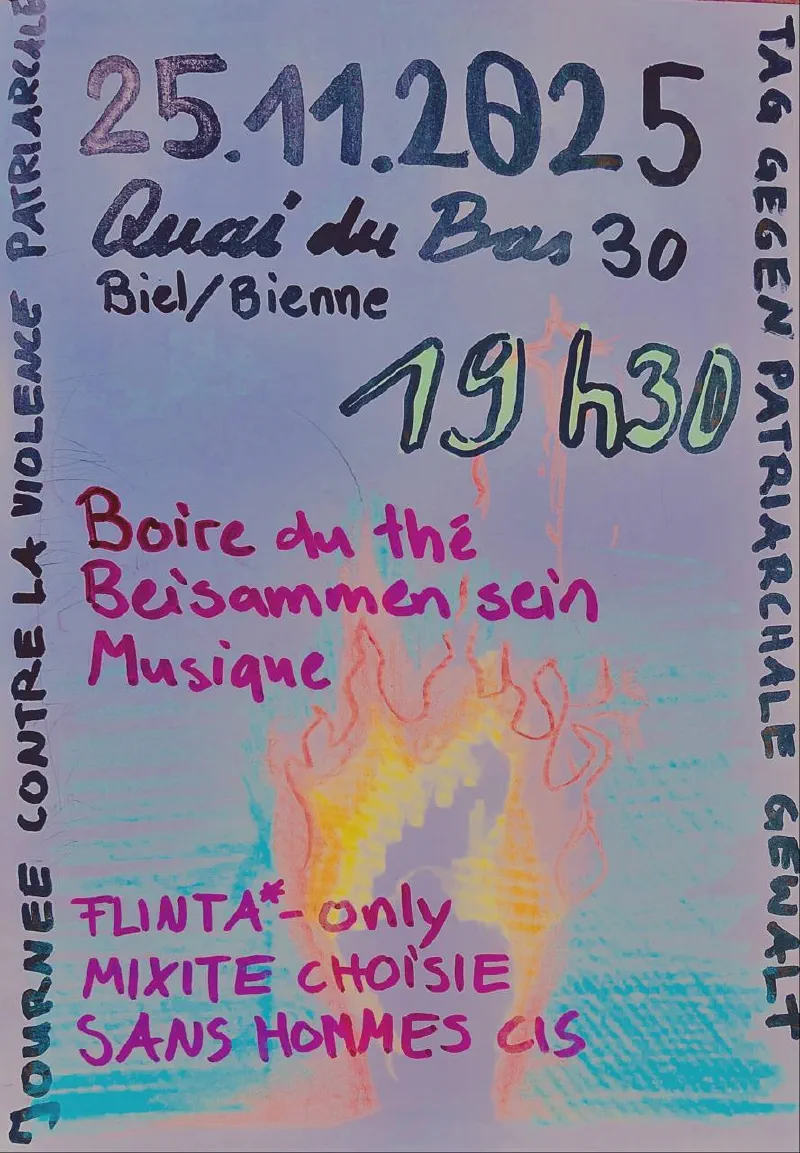 25.11.2025
Quai du Bas 30
Biel/Bienne
19h30
Boire du thé
Beisammen sein
Musique
FLINTA*-only
MIXITE CHOISIE
SANS HOMMES CIS
JOURNEE CONTRE LA VIOLENCE PATRIARCALE
TAG GEGEN PATRIARCHALE GEWALT